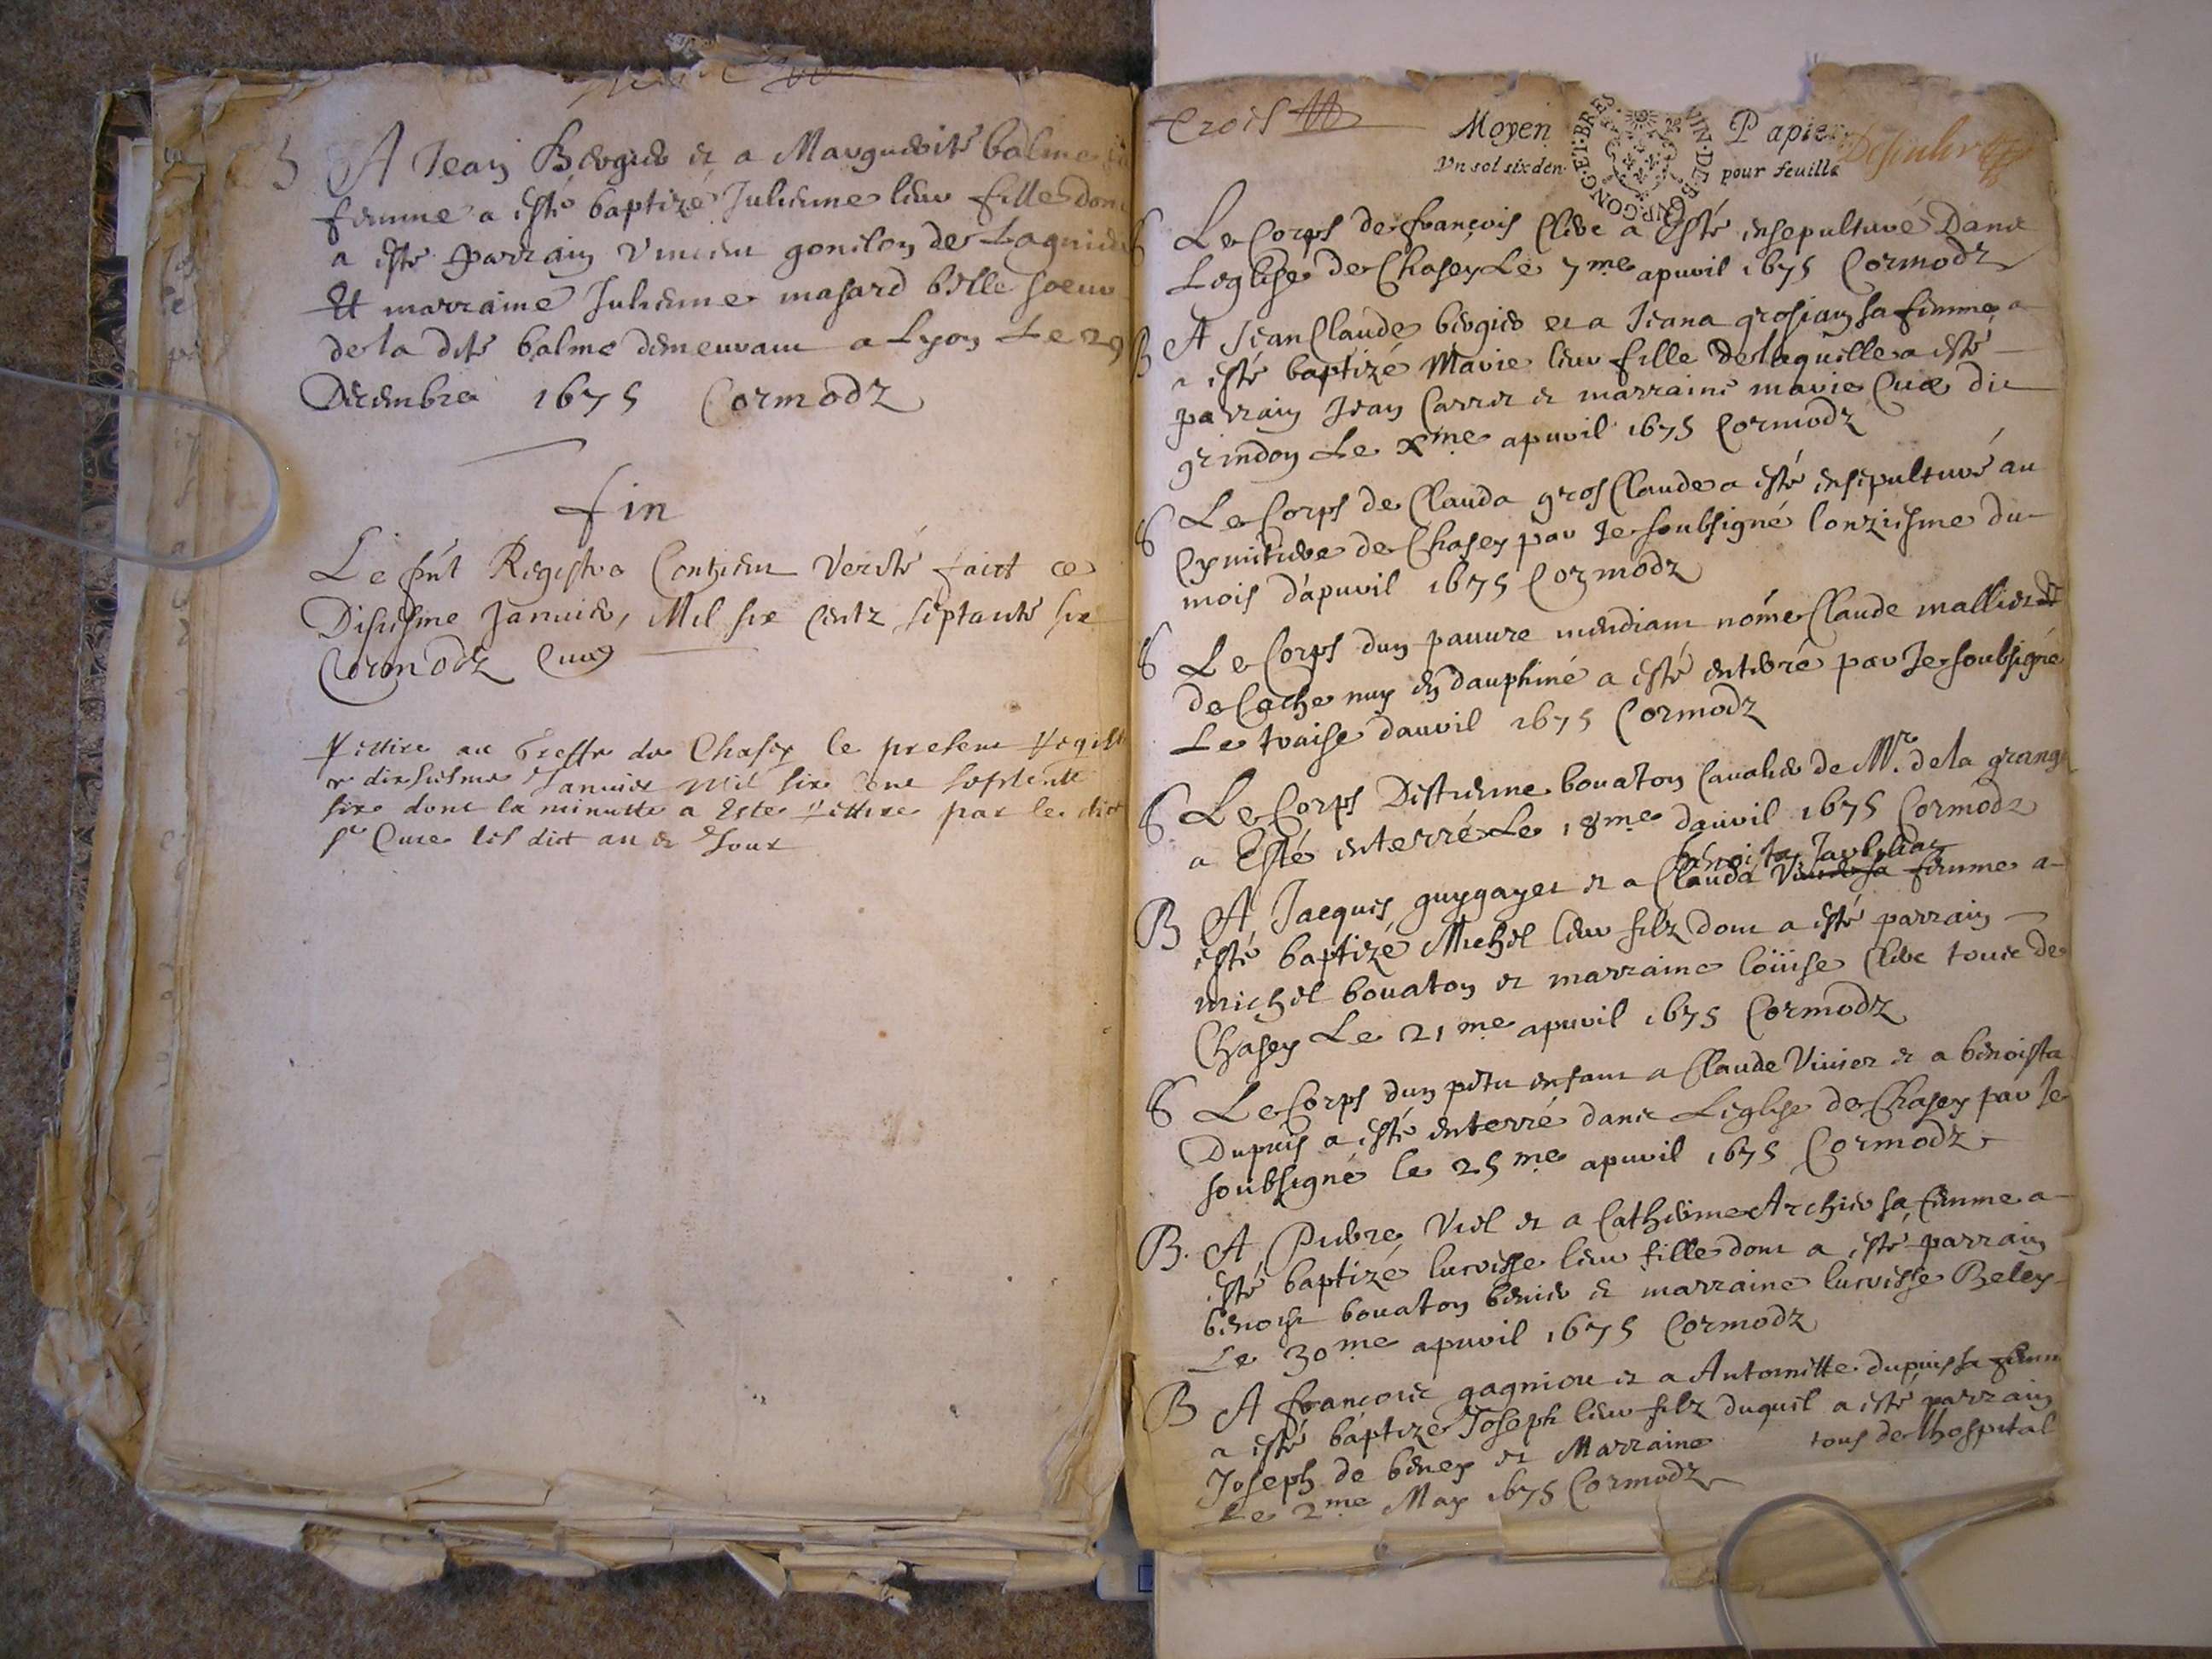 B A Jean Bergier et a Marguerite balme sa
femme a esté baptizé Julienne leur fille dont
a esté parrain Vincent gonilon de Lagnieu
Et marraine Julienne masard belle soeur
de la dite balme demeurant a Lyon Le 29
Decembre 1675 Cormodz
fin
Le pnt Registre Contient Verité faict ce
Disiesme Janvier, Mil six Centz septante six
Cormodz Curé
Rettiré au Greffe de Chasey le present Registre
dixhuime Janvier mil six Cent septente
six dont la minutte a este rettiré par le dict
sr Curé les dict an et Jour
Trois
Moyen Papier
Vn sol six den. pour feuille
GEN. DE BOVRGONG. ET BRES
S Le Corps de françois Clerc a Esté ensepulturé Dans
Leglise de Chasey Le 7me apuril 1675 Cormodz
B A Jean Claude bergier et a Jeana grosjean sa femme a
a esté baptizé Marie leur fille de laquelle a esté
parrain Jean Carrer et marraine marie Cue de
grindon Le xme apuril 1675 Cormodz
S Le Corps de Clauda gros Claude a esté ensepulturé au
Cymitiere de Chasey par Je soubsigné lonziesme du
mois dapuril 1675 Cormodz
S Le Corps dun pauure mendiant nomé Claude mallier
de Cachenuy en dauphiné a esté enterré par Je soubsigné
Le traise dauril 1675 Cormodz
S Le Corps Destienne bouaton Cavalier de Mr. de la grange
a Esté enterré Le 18me dauril 1675 Cormodz
benoista Jaubeliar
B A Jacques guygayer et a Clauda femme a
esté baptizé Michel leur filz dont a esté parrain
michel bouaton et marraine loüise Clerc tous de
Chasey Le 21me apuril 1675 Cormodz
S Le Corps dun petit enfant a Claude Viuier et a benoista
Dupuis a esté enterré dans Leglise de Chasey par Je
soubsigné le 25me apuril 1675 Cormodz
B. A Pierre Viel et a Catherine Archier sa femme a
esté baptizé lucresse leur fille dont a esté parrain
benoist bouaton benier et marraine lucresse Beley
Le 30me apuril 1675 Cormodz
B A françois gagniou et a Antoinette dupuis sa femme
a esté baptizé Joseph leur filz duquel a esté parrain
Joseph de beney et Marraine tous de lhospital
Le 2me May 1675 Cormodz